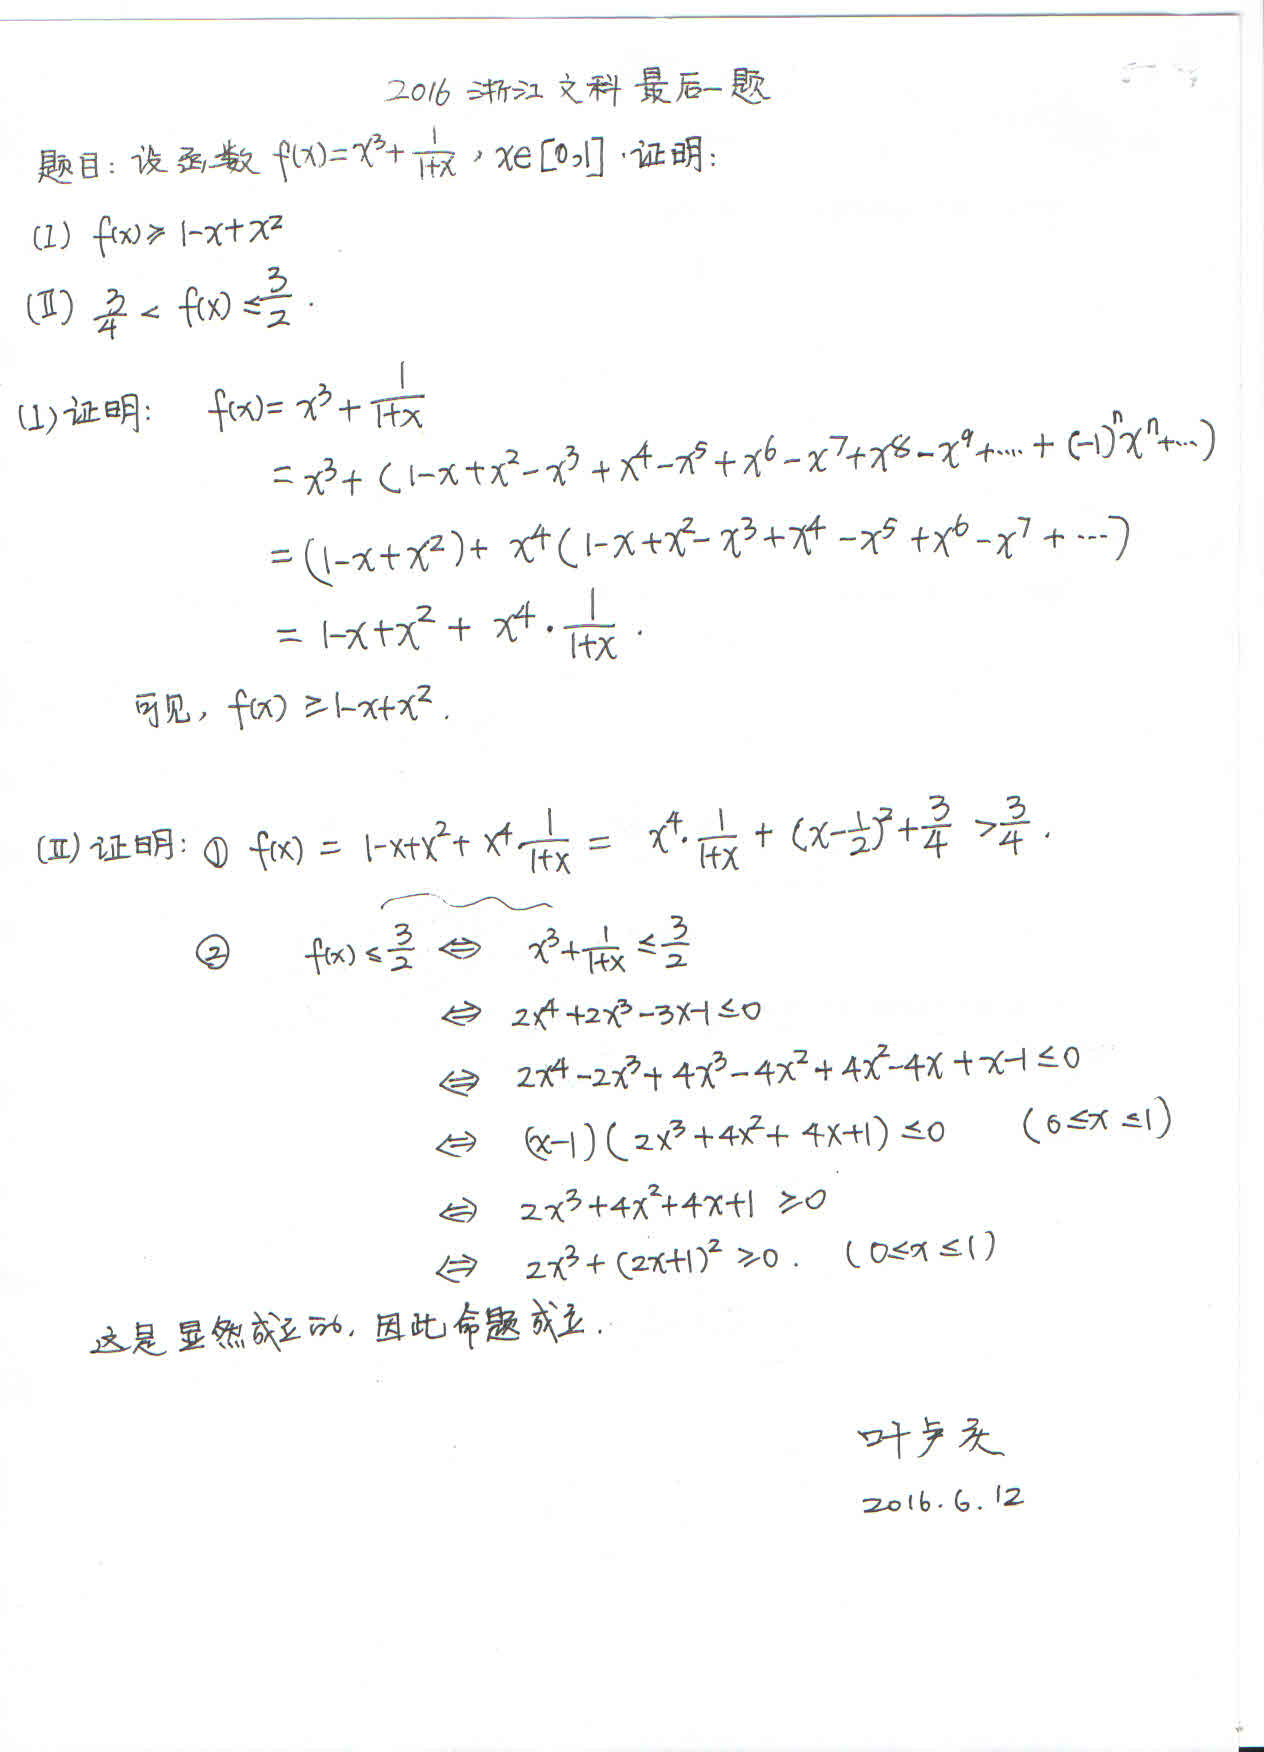 2016 浙江文科最后一题
题目: 设函数 f(x)=x³+1/(1+x), x∈[0,1]. 证明:
(I) f(x)≥1-x+x²
(II) 3/4 < f(x) ≤ 3/2.
(I) 证明: f(x)=x³+1/(1+x)
=x³+(1-x+x²-x³+x⁴-x⁵+x⁶-x⁷+x⁸-x⁹+....+(-1)ⁿxⁿ+...)
=(1-x+x²)+x⁴(1-x+x²-x³+x⁴-x⁵+x⁶-x⁷+...)
=1-x+x²+x⁴·1/(1+x).
可见, f(x)≥1-x+x².
(II) 证明: ① f(x)=1-x+x²+x⁴·1/(1+x)=x⁴·1/(1+x)+(x-1/2)²+3/4>3/4.
② f(x)≤3/2 ⇔ x³+1/(1+x)≤3/2
⇔ 2x⁴+2x³-3x-1≤0
⇔ 2x⁴-2x³+4x³-4x²+4x²-4x+x-1≤0
⇔ (x-1)(2x³+4x²+4x+1)≤0 (0≤x≤1)
⇔ 2x³+4x²+4x+1≥0
⇔ 2x³+(2x+1)²≥0. (0≤x≤1)
这是显然成立的, 因此命题成立.
叶卢庆
2016.6.12